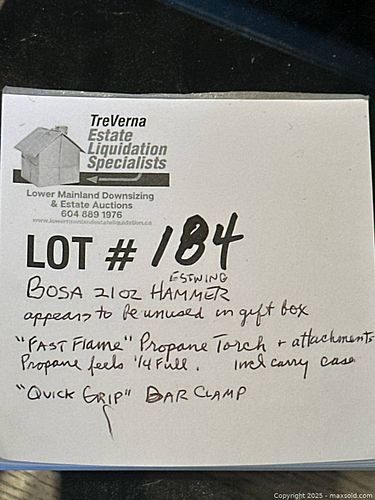 TreVerna
Estate
Liquidation
Specialists
Lower Mainland Downsizing
& Estate Auctions
604 889 1976
www.lowermainlandestateliquidation.ca
LOT # 184
ESTWING
BOSA 21 OZ HAMMER
appears to be unused in gift box
"FAST FLAME" Propane Torch + attachments
Propane feels 1/4 Full. incl carry case
"QUICK GRIP" BAR CLAMP
Copyright 2025 - maxsold.com